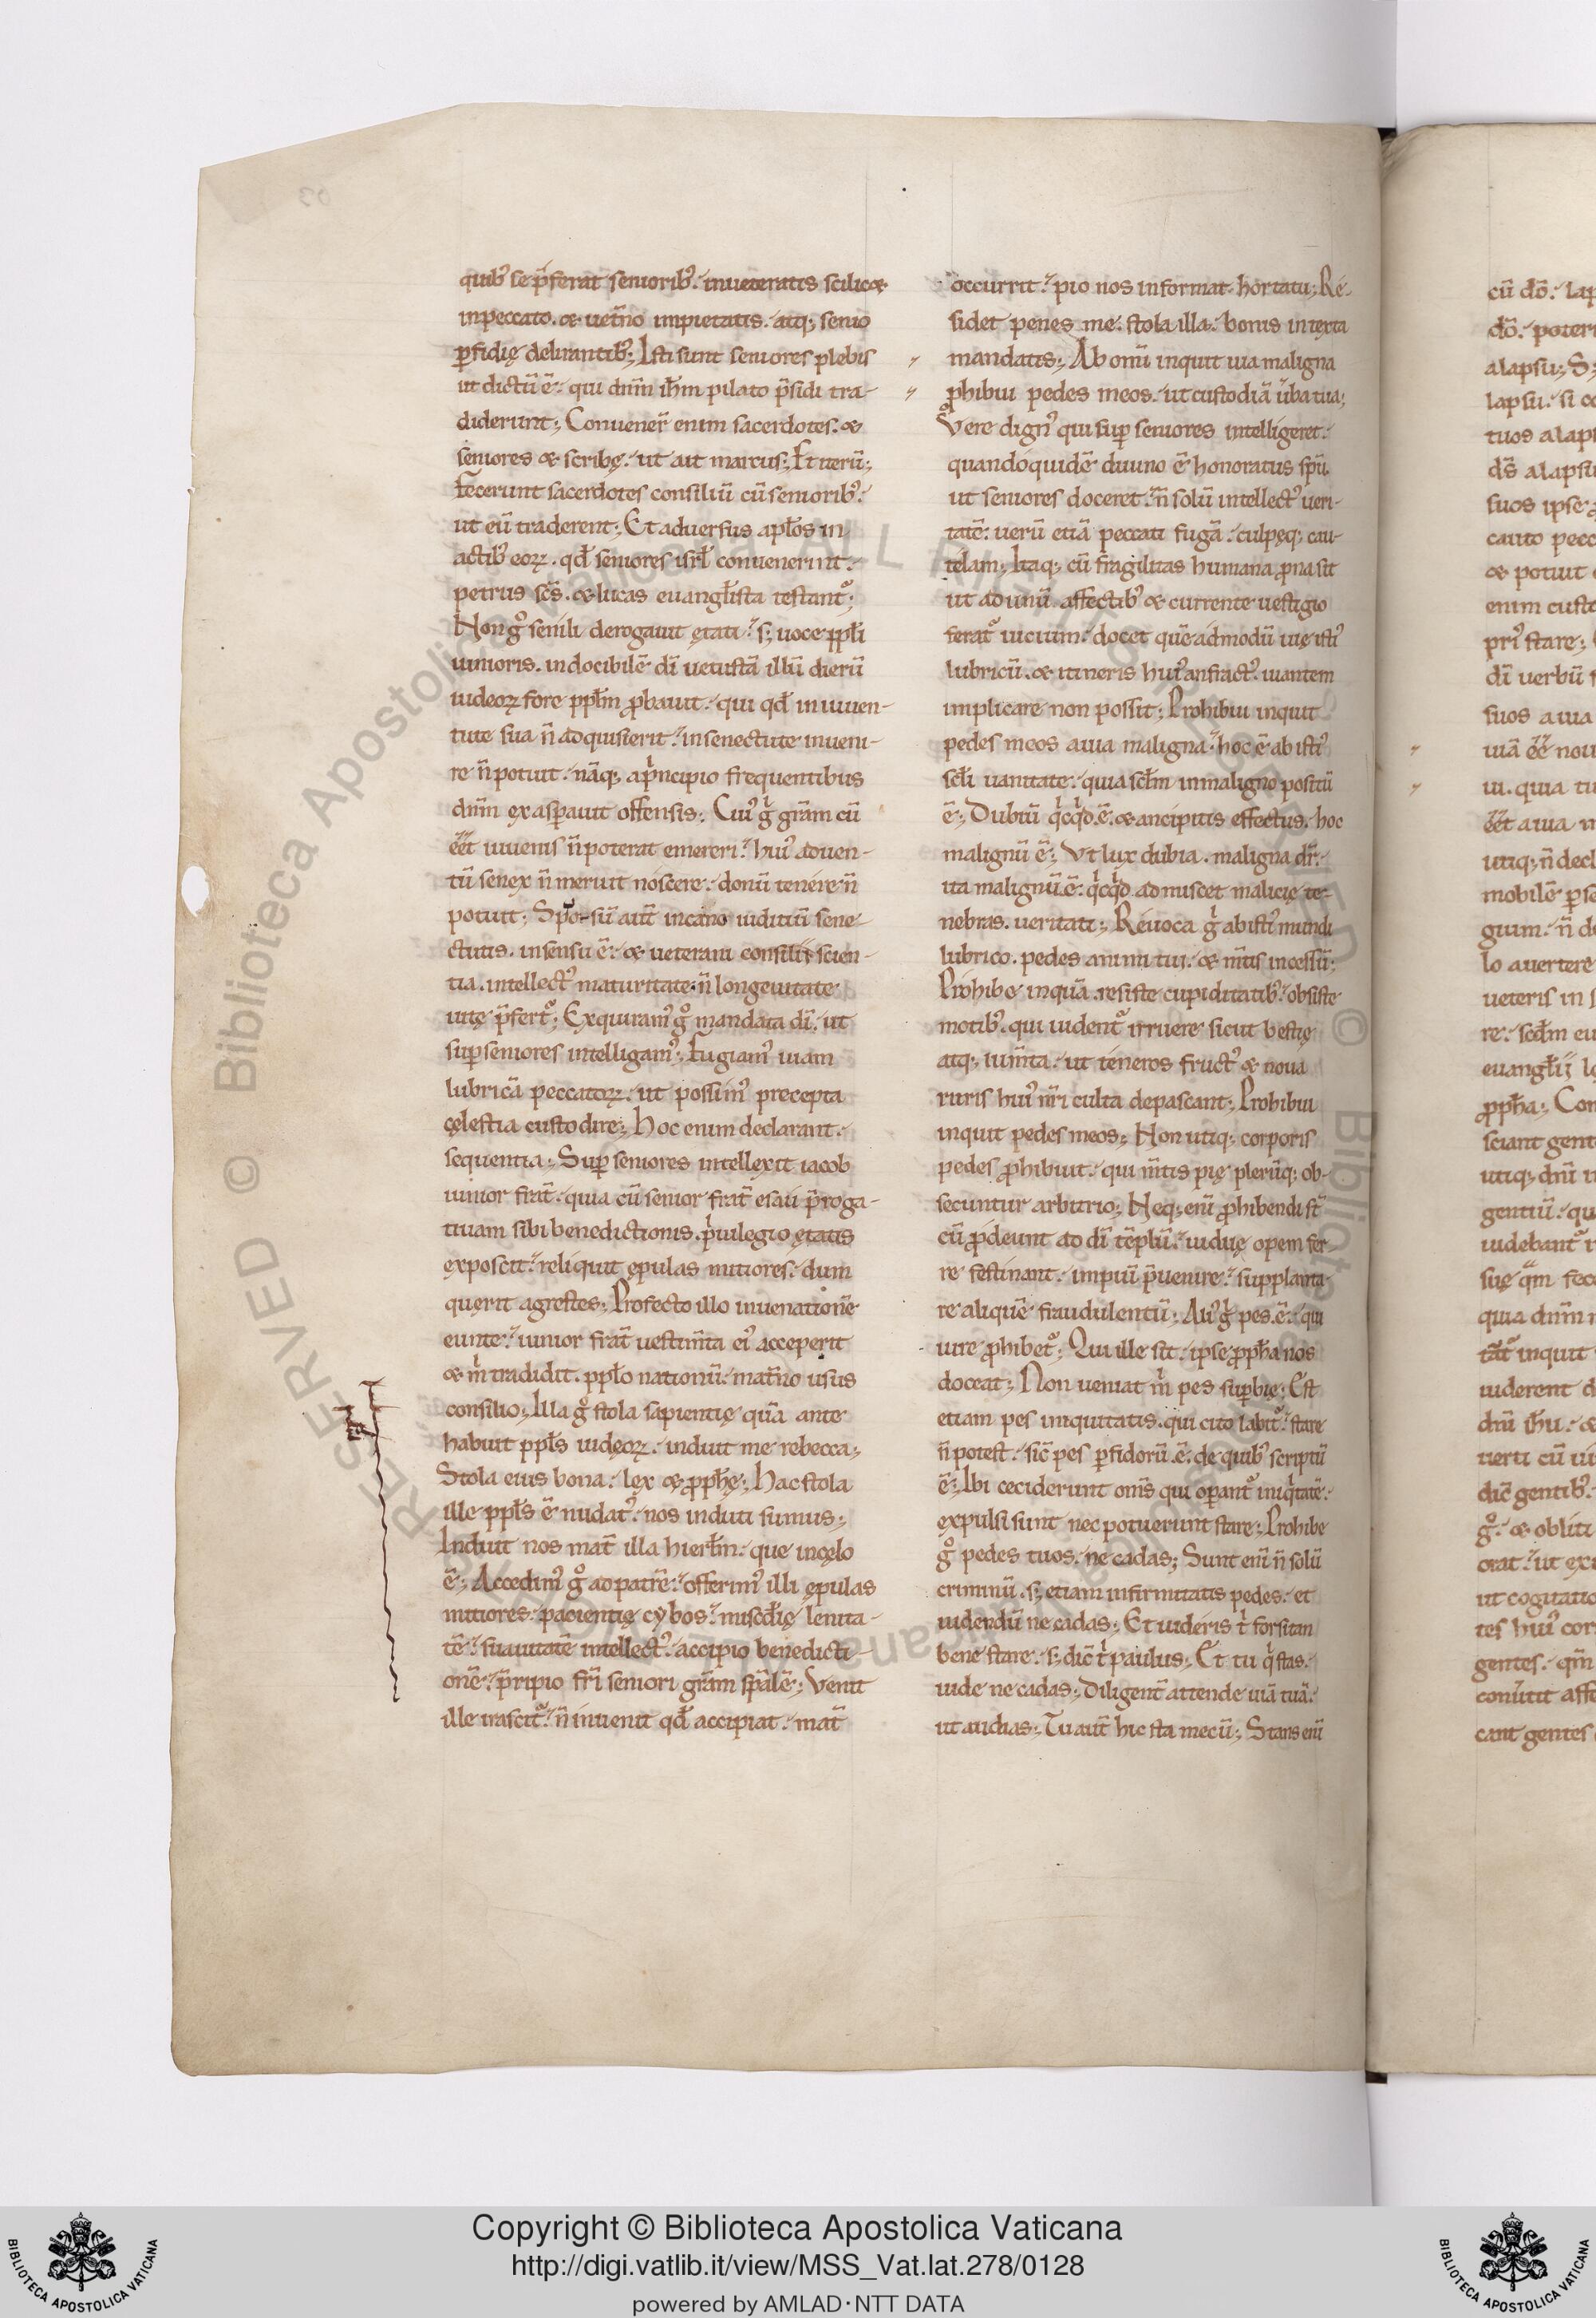 quib᷒ se p̄ferat seniorib᷒. inueteratis scilicet
in peccato. & uet̄no impietatis. atq; senio
ꝑfidię delirantib᷒; Isti sunt seniores plebis
ut dictū ē. qui dn̄m ih̄m pilato p̄sidi tra-
diderunt; Conuener̄ enim sacerdotes. &
seniores & scribę. ut ait marcus; Et iterū;
fecerunt sacerdotes consiliū cū seniorib᷒.
ut eū traderent; Et aduersus apłos in
actib᷒ eoꝝ. qđ seniores isrł conuenerint.
petrus sc̄s. & lucas euangłista testant᷑;
Non gͦ senili derogauit ętati. s; uoce ppłi
iunioris. indocibilē dī uetustā illū dierū
iudeoꝝ fore ppłm ꝓbauit. qui qđ in iuuen-
tute sua n̄ adquisierit. in senectute inueni-
re n̄ potuit. nāq; a pͥncipio frequentibus
dn̄m exasꝑauit offensis; Cui᷒ gͥ grām cū
eēt iuuenis n̄ poterat emereri. hui᷒ aduen-
tū senex n̄ meruit noscere. donū tenere n̄
potuit;
ctutis. in sensu ē. & ueterani consilii scien-
tia. intellect᷒ maturitate n̄ longeuitate
uitę p̄fert᷑; Exquiram᷒ gͦ mandata dī. ut
suꝑ seniores intelligam᷒; Fugiam᷒ uiam
lubricā peccatoꝝ. ut possim᷒ precepta
cęlestia custodire; Hoc enim declarant.
sequentia; Suꝑ seniores intellexit iacob
iunior frat̄. quia cū senior frat̄ esau p̄roga-
tiuam sibi benedictionis. pͥuilegio ętatis
exposcit. reliquit epulas mitiores. dum
querit agrestes; Profecto illo in uenationē
eunte. iunior frat̄ uestim̄ta ei᷒ acceperit
& mͥ tradidit. ppło nationū. mat̄no usus
consilio; Illa gͦ stola sapientię quā ante
habuit ppłs iudęoꝝ. induit me rebecca;
Stola eius bona. lex & ꝓph̄ę; Hac stola
ille ppłs ē nudat᷒. nos induti sumus;
Induit nos mat̄ illa hierłm. que in cęlo
ē; Accedim᷒ gͦ ad patrē. offerim᷒ illi ępulas
mitiores. pacientię cybos. misc̄dię lenita-
tē. suauitatē intellect᷒. accipio benedicti-
onē. p̄ripio fr̄i seniori grām sp̄alē; Venit
ille irascit᷑. n̄ inuenit qđ accipiat. mat̄
occurrit. pio nos informat hortatu; Re-
sidet penes me. stola illa. bonis intexta
mandatis; Ab omī inquit uia maligna
ꝓhibui pedes meos. ut custodiā ūba tua;
Vere dign᷒ qui suꝑ seniores intelligeret.
quandoquidē diuino ē honoratus sp̄u.
ut seniores doceret. n̄ solū intellect᷒ ueri-
tatē. uerū etiā peccati fugā. culpęq; cau-
telam; Itaq; cū fragilitas humana ꝓna sit
ut ad unū affectib᷒ & currente uestigio
ferat᷑ uicium. docet quēadmodū uię isti᷒
lubricū. & itineris hui᷒ anfract᷒. uiantem
implicare non possit; Prohibui inquit
pedes meos a uia maligna. hoc ē ab isti᷒
sc̄łi uanitate. quia sc̄łm in maligno positū
ē; Dubiū qͥcqͥd. ē. & ancipitis effectus. hoc
malignū ē; Vt lux dubia. maligna dr̄.
ita malignū. ē. qͥcqͥd admiscet malicię te-
nebras. ueritati; Reuoca gͥ ab isti᷒ mundi
lubrico. pedes animi tui. & m̄tis incessū;
Prohibe inquā. resiste cupiditatib᷒. obsiste
motib᷒. qui uident᷑ irruere sicut bestię
atq; ium̄ta. ut teneros fruct᷒ & noua
ruris hui᷒ nr̄i culta depascant; Prohibui
inquit pedes meos; Non utiq; corporis
pedes ꝓhibuit. qui m̄tis pię plerūq; ob-
secuntur arbitrio; Neq; enī ꝓhibendi st̄
cū ꝓdeunt ad dī tēplū. uiduę opem fer-
re festinant. impiū p̄uenire. supplanta-
re aliquē fraudulentū; Ali᷒ gͥ pes. ē. qui
iure ꝓhibet᷑; Qui ille sit. ipse ꝓph̄a nos
doceat; Non ueniat mͥ pes suꝑbię; Est
etiam pes iniquitatis. qui cito labit᷑. stare
n̄ potest. sic̄ pes ꝑfidorū. ē. de quib᷒ scriptū
ē; Ibi ceciderunt om̄s qui oꝑant᷑ iniqͥtatē.
expulsi sunt nec potuerunt stare; Prohibe
gͦ pedes tuos. ne cadas; Sunt enī n̄ solū
criminū. s; etiam infirmitatis pedes. et
uidendū ne cadas; Et uideris tͥ forsitan
bene stare. s; dic̄ tͥ paulus; Et tu qͥ stas.
uide ne cadas; Diligent̄ attende uiā tuā.
ut audias; Tu aut̄ hic sta mecū; Stans enī
cū dō.
alapsu; S;
lapsu. si
tuos alap
suos ipse
cauto pecc
& potuit
enim custo
pri᷒ stare;
dī uerbū
suos a uia
uiā
ui. quia tu
mobilē ꝑse
gium. n̄
lo auertere
ueteris in
euangłii
ꝓph̄a; Con
sciant gent
utiq; dn̄i
gentiū. qu
uidebant᷑
quia dn̄m
inquit
uiderent
dn̄i ih̄u. &
dic̄ gentib᷒.
gͦ. & obliti
ut cogitatio
tes hui᷒ cor
gentes. qm̄
cant gentes
© Biblioteca Apostolica Vaticana ALL RIGHTS RESERVED
Copyright © Biblioteca Apostolica Vaticana
http://digi.vatlib.it/view/MSS_Vat.lat.278/0128
powered by AMLAD·NTT DATA
BIBLIOTECA APOSTOLICA VATICANA
BIBLIOTECA APOSTOLICA VATICANA